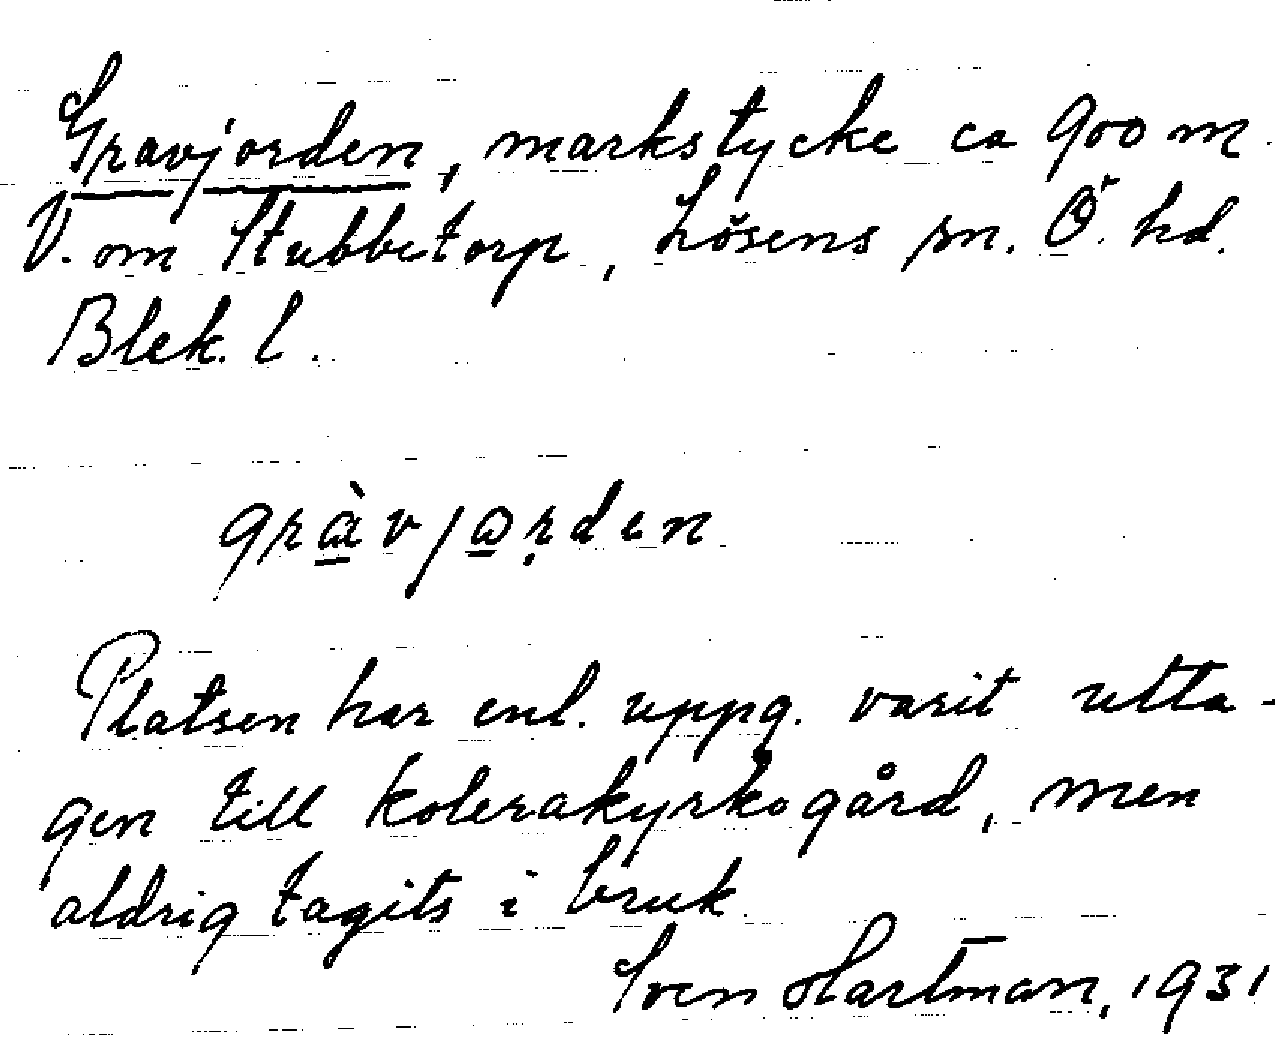 Gravjorden, markstycke ca 900 m
V. om Stubbetorp, Lösens sn. Ö. hd.
Blek. l.
gràvjo̱ṛden
Platsen har enl. uppg. varit utta-
gen till kolerakyrkogård, men
aldrig tagits i bruk.
Sven Hartman, 1931